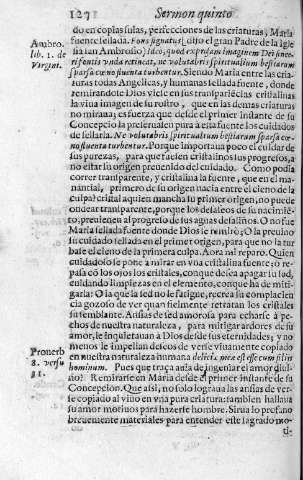 127 Sermon quinto
do en copias suias, perfecciones de las criaturas, Maria
fuente sellada. Fons signatus; dijo el gran Padre de la Igle
sia san Ambrosio;
Ambro.
lib. 1. de
Virgini.
spirsa cænosfluenta turbentur. Siendo Maria entre las cria
turas todas Angelicas, y humanas sellada fuente, donde
remirandose Dios viesse en sus transpariēcias cristalinas
la viua imagen de su rostro, que en las demas criaturas
no miraua; es fuerça que desde el primer instante de su
Concepcion la preseruasen para si essa fuente los cuidados
de sellarla. Ne volutabris spiritualium bestiarum sparsa cæ-
nosfluenta turbentur. Porque importaua poco el cuidar de
sus purezas, para que fuesen cristalinos sus progresos, a
no estar su origen preuenido del cuidado. Como podia
correr transparente, y cristalina la fuente, que en el ma-
nantial, primero de su origen nacia entre el cieno de la
culpa? cristal aquien mancha su primer origen, no puede
ondear transparente, porque los desaseos de su nacimiē-
to, preuienen al progreso de sus aguas desaliños. O no fue
Maria sellada fuente donde Dios se remirò; o la preuino
su cuidado sellada en el primer origen, para que no la tur
base el cieno de la primera culpa. Aora mi reparo. Quien
cuidadoso se pone a mirar en vna cristalina fuente; o re
pasa cō los ojos los cristales, conque desea apagar su sed,
cuidando limpiezas en el elemento, conque ha de miti-
garla: O la que la sed no le fatigue, recrea su complacien
cia gozoso de ver quan fielmente retratan los cristales
su semblante. Ansias de sed amorosa para echarse a pe-
chos de nuestra naturaleza, para mitigar ardores de su
amor, le inquietauan a Dios desde sus eternidades; y no
menos le impelian deseos de verse viuamente copiado
en nuestra naturaleza humana deliciæ meæ est esse cum filiis
hominum. Pues que traça auia de ingeniar el amor diui-
no? Remirarse en Maria desde el primer instante de su
Concepcion. Que assi, no solo lograua las ansias de ver-
se copiado al viuo en vna pura criatura: tambien hallaua
su amor motiuos para hazerse hombre. Sirua lo profano
breuemente materiales para entender este sagrado mo-
ti-
Prouerb
8. versu
31.